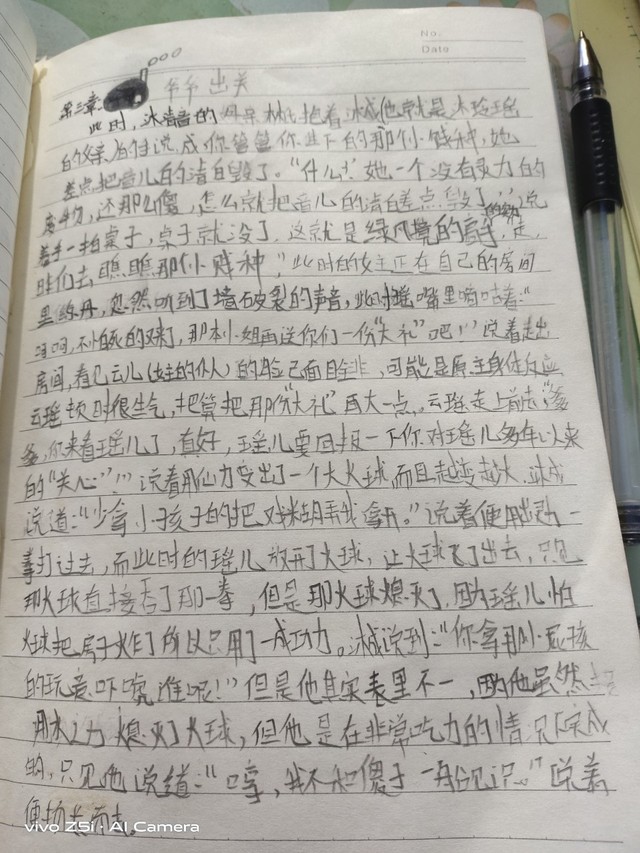 No.
Date
第三章 爷爷出关
此时,冰清音的 抱着冰城他就是冰玲瑶
的父亲 说,成你爸爸你生下的那个小贱种,她
差点把音儿的清白毁了。“什么!她一个没有灵力的
废物,还那么傻,怎么就把音儿的清白差点毁了”说
着手一拍桌子,桌子就没了,这就是绿风境的高手,走,
咱们去瞧瞧那个小贱种”此时的女主正在自己的房间
里练丹,忽然听到了墙破裂的声音,此时瑶嘴里嘀咕着:“
呵呵,不怕死的又来了,那本小姐再送你们一份“大礼”吧!”说着走出
房间,看见云儿(女主的仆人)的脸已面目全非,可能是原主身体反应
云瑶顿时很生气,打算把那份“大礼”再大一点,云瑶走上前去“爹
爹,你来看瑶儿了,真好,瑶儿要回报一下你对瑶儿多年以来
的“关心””说着用仙力变出了一个大火球,而且越变越大,冰城
说道:“少拿小孩子的把戏来胡弄我 拿开。”说着便用出 一
拳打过去,而此时的瑶儿放开了火球,让火球飞了出去,只见
那火球直接吞了那一拳,但是那火球熄灭了,因为瑶儿怕
火球把房子炸了所以只用了一成功力。冰城说到:“你拿那小屁孩
的玩意吓唬谁呢!”但是他其实表里不一,因为他虽然
用水之力熄灭了火球,但他是在非常吃力的情况下完成
的,只见他说道:“哼,我不和傻子一般见识。”说着
便扬长而去
vivo Z5i · AI Camera